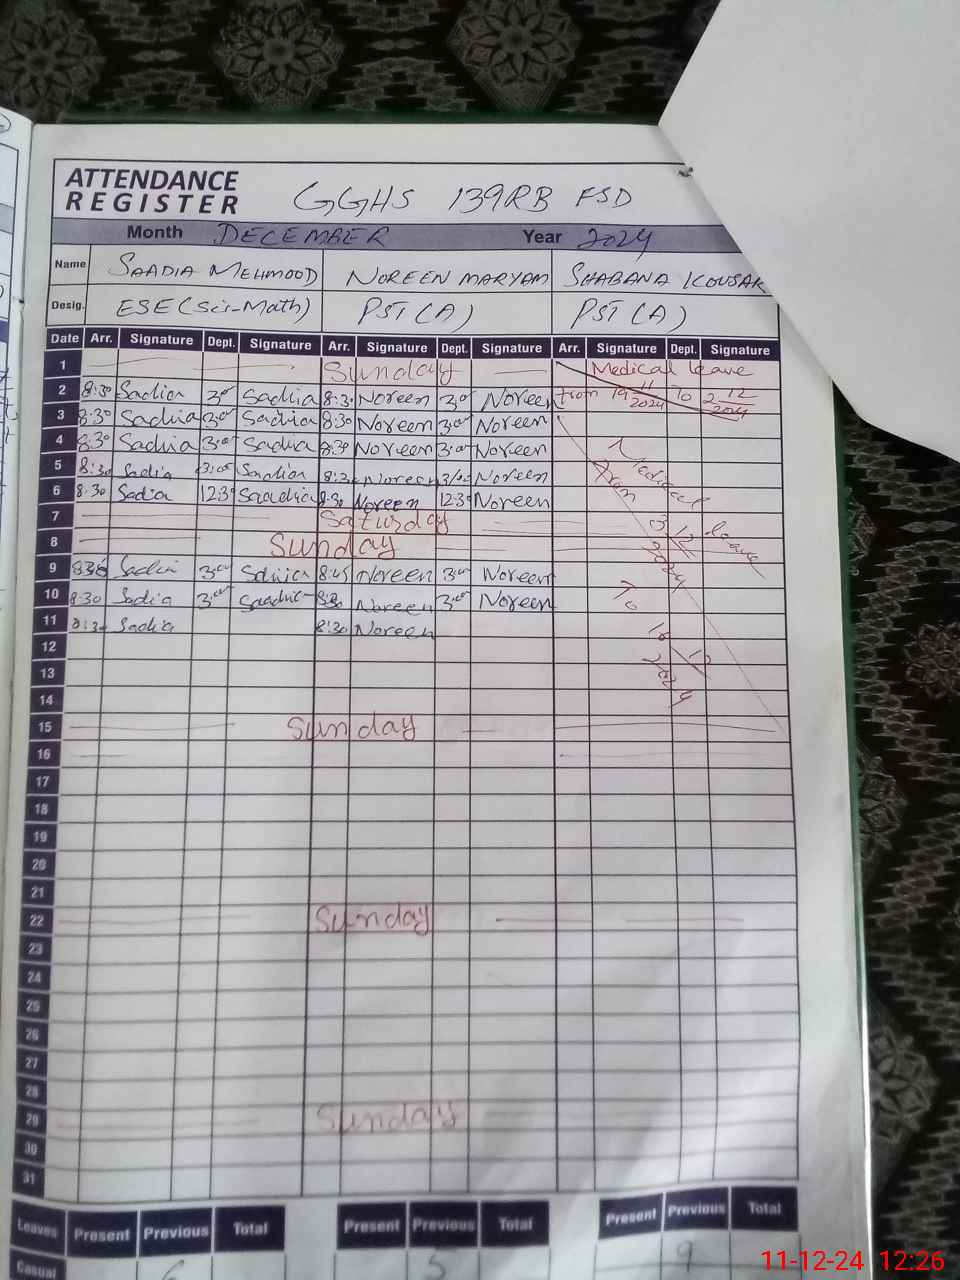 ATTENDANCE REGISTER GGHS 139RB FSD
Month DECEMBER Year 2024
Name SAADIA MEHMOOD NOREEN MARYAM SHABANA KOUSAR
Desig. ESE (Sci-Math) PST (A) PST (A)
Date Arr. Signature Dept. Signature Arr. Signature Dept. Signature Arr. Signature Dept. Signature
1 Sunday Medical leave
2 8:30 Sadia 3:00 Sadia 8:30 Noreen 3:00 Noreen from 19 11 2024 To 2 12 2024
3 8:30 Sadia 3:00 Sadia 8:30 Noreen 3:00 Noreen
4 8:30 Sadia 3:00 Sadia 8:30 Noreen 3:00 Noreen Medical leave
5 8:30 Sadia 3:00 Sadia 8:30 Noreen Noreen from
6 8:30 Sadia 12:30 Saadia 8:30 Noreen 12:30 Noreen
7 Saturday 3 12 2024
8 Sunday
9 Sadia 3:00 8:45 Noreen 3:00 Noreen To
10 8:30 Sadia 3:00 Noreen 3:00 Noreen
11 8:30 Sadia 8:30 Noreen 16 12 2024
12
13
14
15 Sunday
16
17
18
19
20
21
22 Sunday
23
24
25
26
27
28
29 Sunday
30
31
Leaves Present Previous Total Present Previous Total Present Previous Total
Casual 6 5 9
11-12-24 12:26